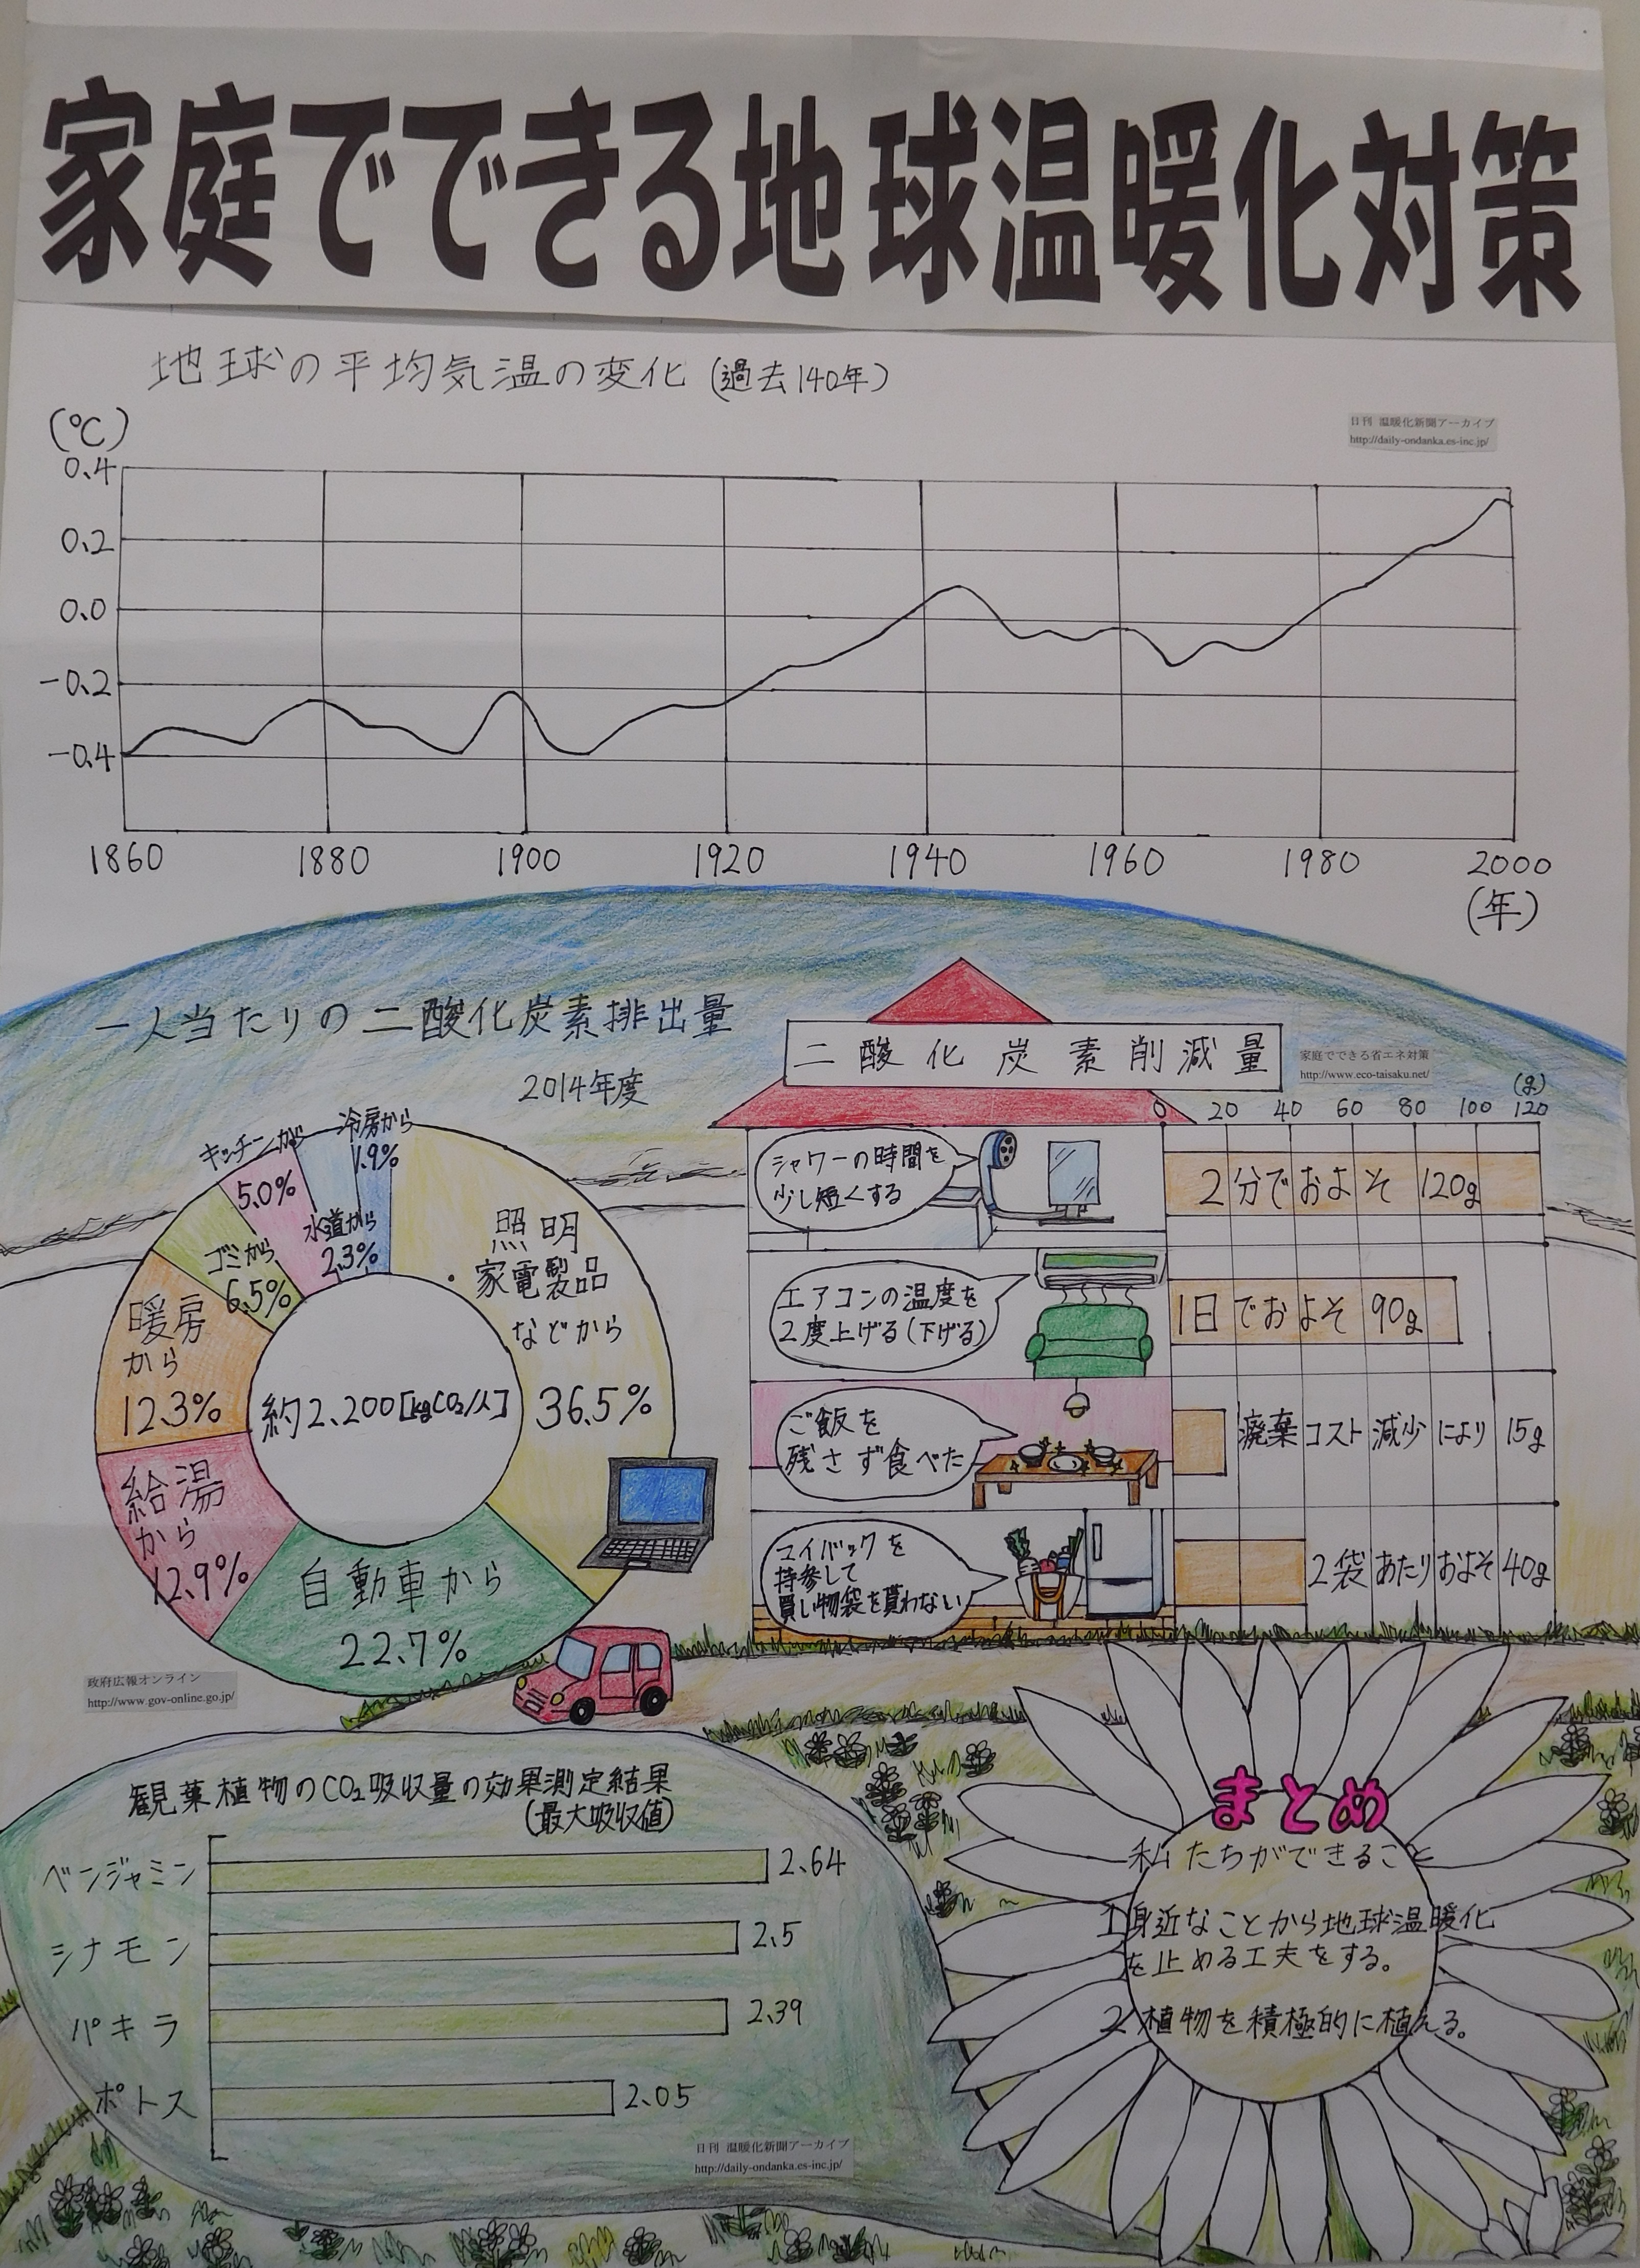 家庭でできる地球温暖化対策
地球の平均気温の変化 (過去140年)
(℃)
日刊 温暖化新聞アーカイブ
http://daily-ondanka.es-inc.jp/
0.4
0.2
0.0
-0.2
-0.4
1860 1880 1900 1920 1940 1960 1980 2000
(年)
一人当たりの二酸化炭素排出量
2014年度
冷房から
1.9%
キッチンから
5.0%
水道から
2.3%
ゴミから
6.5%
照明
・家電製品
などから
36.5%
暖房
から
12.3%
約2,200[kgCO₂/人]
給湯
から
12.9%
自動車から
22.7%
政府広報オンライン
http://www.gov-online.go.jp/
二酸化炭素削減量
家庭でできる省エネ対策
http://www.eco-taisaku.net/
(g)
0 20 40 60 80 100 120
シャワーの時間を
少し短くする
2分でおよそ 120g
エアコンの温度を
2度上げる(下げる)
1日でおよそ 90g
ご飯を
残さず食べた
廃棄コスト減少により 15g
マイバックを
持参して
買い物袋を貰わない
2袋あたりおよそ40g
観葉植物のCO₂吸収量の効果測定結果
(最大吸収値)
ベンジャミン 2.64
シナモン 2.5
パキラ 2.39
ポトス 2.05
日刊 温暖化新聞アーカイブ
http://daily-ondanka.es-inc.jp/
まとめ
私たちができること
1身近なことから地球温暖化
を止める工夫をする。
2植物を積極的に植える。